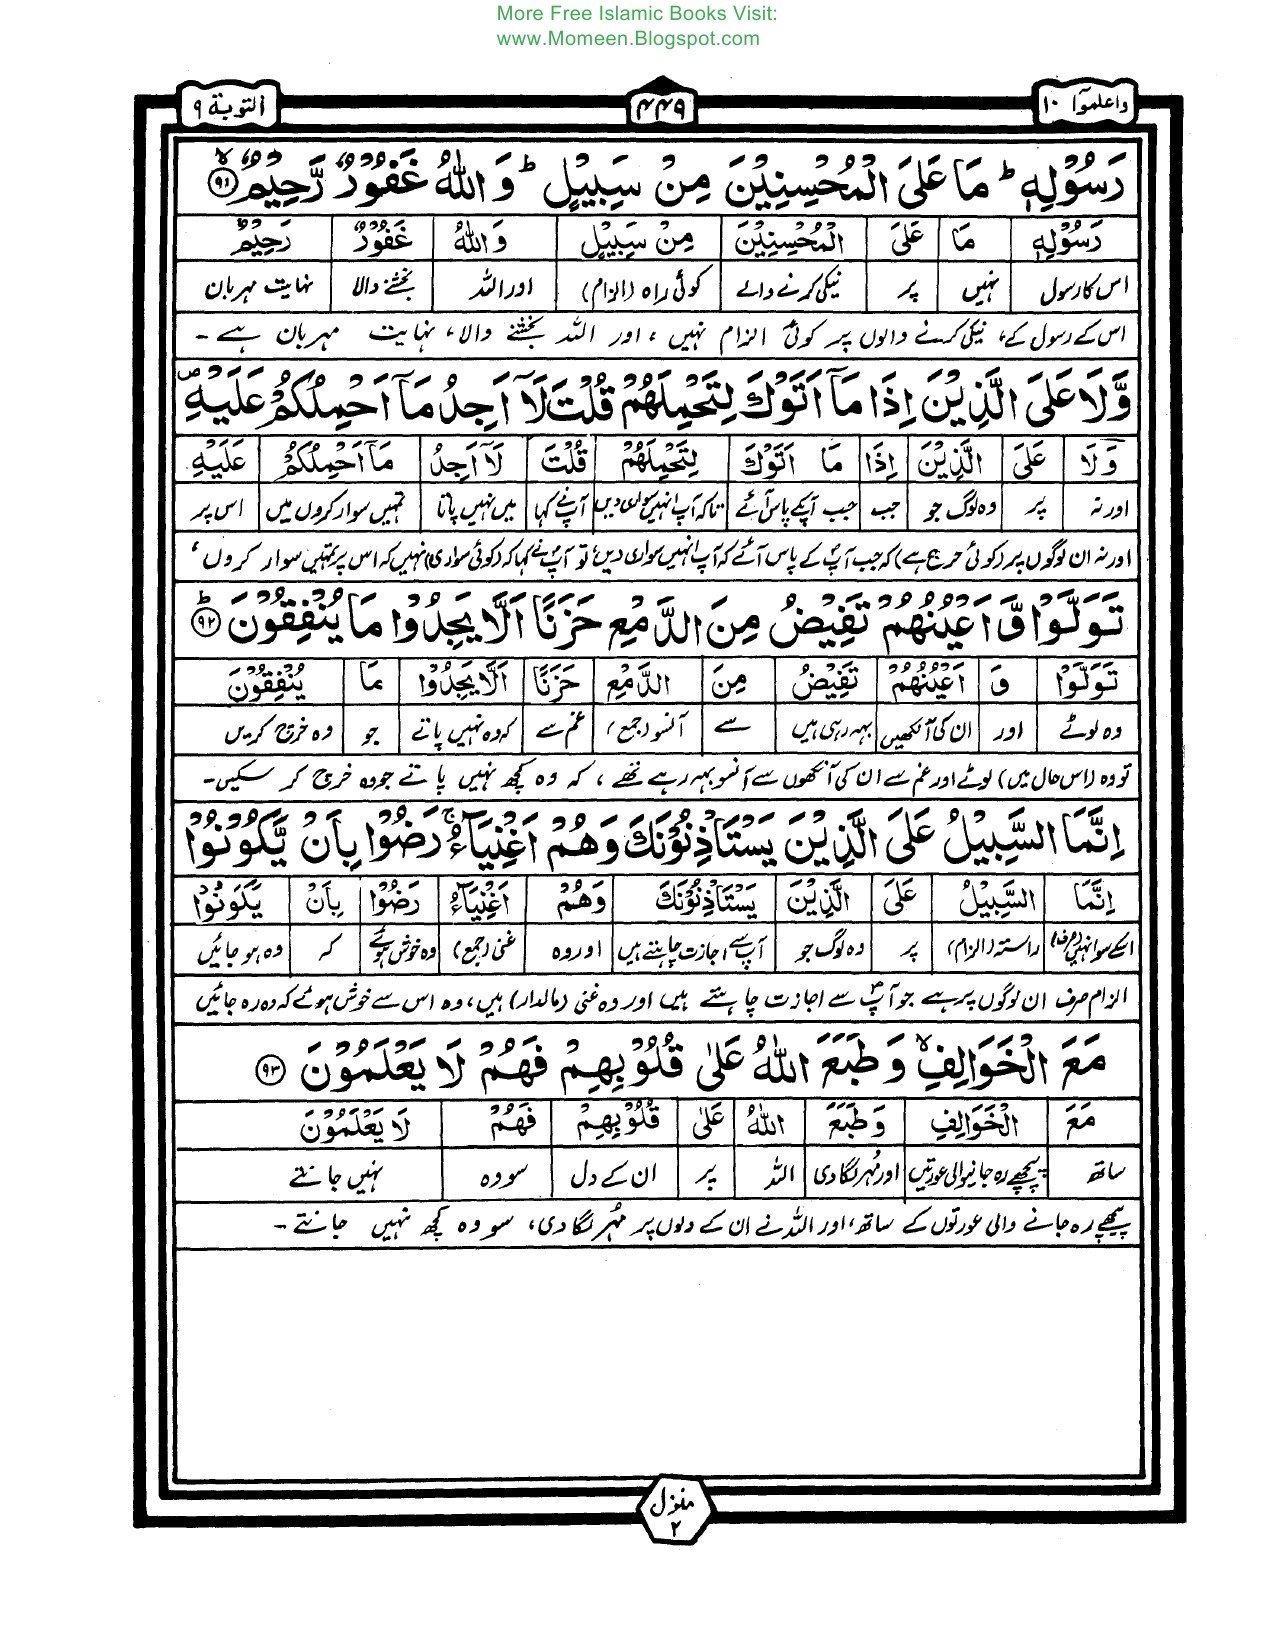 More Free Islamic Books Visit:
www.Momeen.Blogspot.com
واعلموٓا ۱۰
۴۴۹
التوبة ۹
رَسُوْلِهٖ ؕ مَا عَلَى الْمُحْسِنِيْنَ مِنْ سَبِيْلٍ ؕ وَ اللّٰهُ غَفُوْرٌ رَّحِيْمٌ ۙ ﴿۹۱﴾
رَسُوْلِهٖ مَا عَلَى الْمُحْسِنِيْنَ مِنْ سَبِيْلٍ وَ اللّٰهُ غَفُوْرٌ رَحِيْمٌ
اس کا رسول نہیں پر نیکی کرنے والے کوئی راہ (الزام) اور اللہ بخشنے والا نہایت مہربان
اس کے رسول کے، نیکی کرنے والوں پر کوئی الزام نہیں ، اور اللہ بخشنے والا ، نہایت مہربان ہے ۔
وَّلَا عَلَى الَّذِيْنَ اِذَا مَاۤ اَتَوْكَ لِتَحْمِلَهُمْ قُلْتَ لَاۤ اَجِدُ مَاۤ اَحْمِلُكُمْ عَلَيْهِ ۪
وَلَا عَلَى الَّذِيْنَ اِذَا مَا اَتَوْكَ لِتَحْمِلَهُمْ قُلْتَ لَاۤ اَجِدُ مَاۤ اَحْمِلُكُمْ عَلَيْهِ
اور نہ پر وہ لوگ جو جب جب آپکے پاس آئے تاکہ آپ انہیں سواری دیں آپ نے کہا میں نہیں پاتا تمہیں سوار کروں میں اس پر
اور نہ ان لوگوں پر (کوئی حرج ہے) کہ جب آپ کے پاس آئے کہ آپ انہیں سواری دیں تو آپ نے کہا کہ (کوئی سواری) نہیں کہ اس پر تمہیں سوار کروں ،
تَوَلَّوْا وَّ اَعْيُنُهُمْ تَفِيْضُ مِنَ الدَّمْعِ حَزَنًا اَلَّا يَجِدُوْا مَا يُنْفِقُوْنَ ؕ ﴿۹۲﴾
تَوَلَّوْا وَّ اَعْيُنُهُمْ تَفِيْضُ مِنَ الدَّمْعِ حَزَنًا اَلَّا يَجِدُوْا مَا يُنْفِقُوْنَ
وہ لوٹے اور ان کی آنکھیں بہہ رہی ہیں سے آنسو (جمع) غم سے کہ وہ نہیں پاتے جو وہ خرچ کریں
تو وہ (اس حال میں) لوٹے اور غم سے ان کی آنکھوں سے آنسو بہہ رہے تھے ، کہ وہ کچھ نہیں پاتے جو وہ خرچ کر سکیں ۔
اِنَّمَا السَّبِيْلُ عَلَى الَّذِيْنَ يَسْتَاْذِنُوْنَكَ وَهُمْ اَغْنِيَآءُ ۚ رَضُوْا بِاَنْ يَّكُوْنُوْا
اِنَّمَا السَّبِيْلُ عَلَى الَّذِيْنَ يَسْتَاْذِنُوْنَكَ وَهُمْ اَغْنِيَآءُ رَضُوْا بِاَنْ يَكُوْنُوْا
اسکے سوا نہیں (صرف) راستہ (الزام) پر وہ لوگ جو آپ سے اجازت چاہتے ہیں اور وہ غنی (جمع) وہ خوش ہوئے کہ وہ ہو جائیں
الزام صرف ان لوگوں پر ہے جو آپ سے اجازت چاہتے ہیں اور وہ غنی (مالدار) ہیں ، وہ اس سے خوش ہوئے کہ وہ رہ جائیں
مَعَ الْخَوَالِفِ ۙ وَ طَبَعَ اللّٰهُ عَلٰى قُلُوْبِهِمْ فَهُمْ لَا يَعْلَمُوْنَ ﴿۹۳﴾
مَعَ الْخَوَالِفِ وَ طَبَعَ اللّٰهُ عَلٰى قُلُوْبِهِمْ فَهُمْ لَا يَعْلَمُوْنَ
ساتھ پیچھے رہ جانیوالی عورتیں اور مُہر لگا دی اللہ پر ان کے دل سو وہ نہیں جانتے
پیچھے رہ جانے والی عورتوں کے ساتھ ، اور اللہ نے ان کے دلوں پر مُہر لگا دی ، سو وہ کچھ نہیں جانتے ۔
منزل
۲